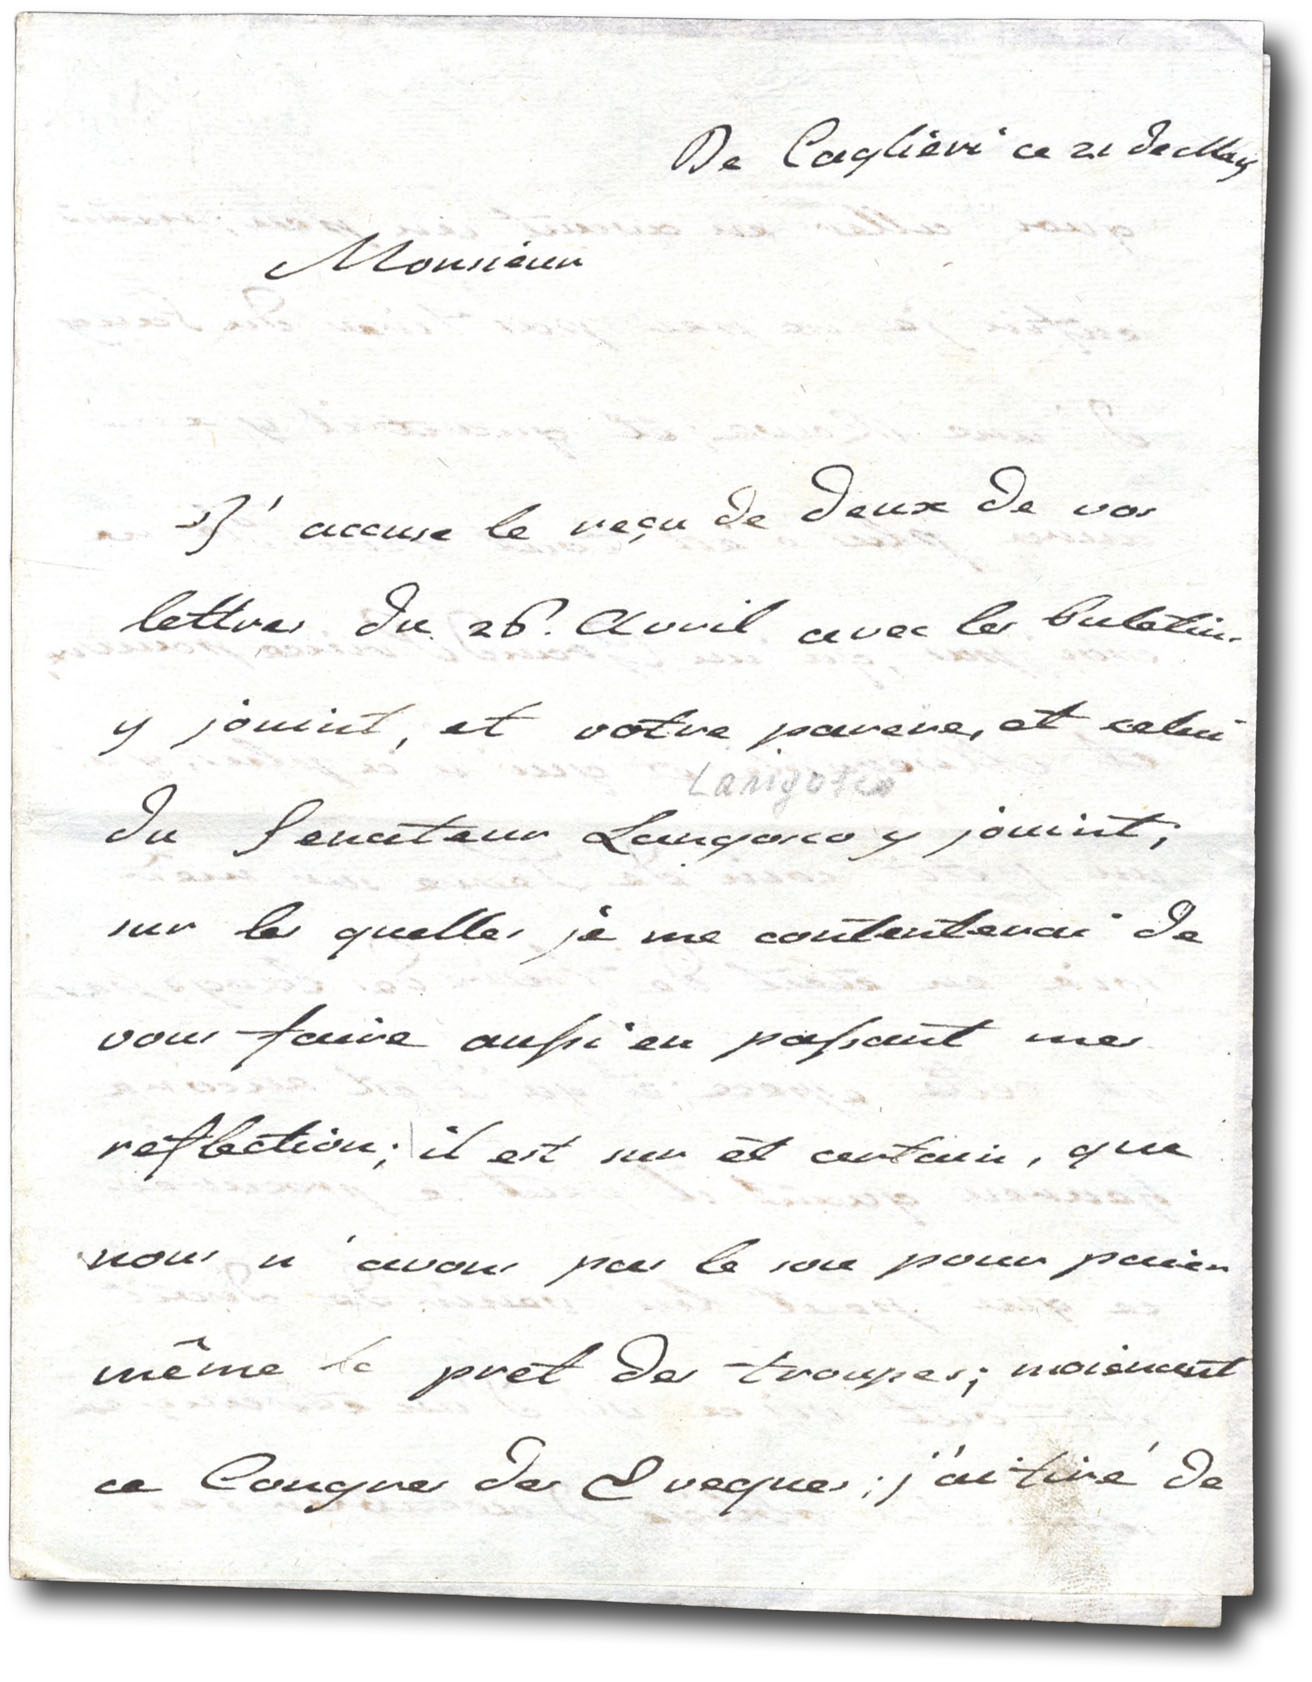 De Cagliéri ce 21 de May
Monsieur
J'accuse le reçu de deux de vos
lettres du 26. Avril avec les buletin
y jouint, et votre parere, et celui
Langosco
du Senateur Langosco y jouint;
sur les quelles je me contenterai de
vous faire aussi en passant mes
reflection; il est sur et certain, que
nous n'avons pas le sou pour paier
même le pret des troupes; moienant
ce Congres des Eveques; j'ai tiré de